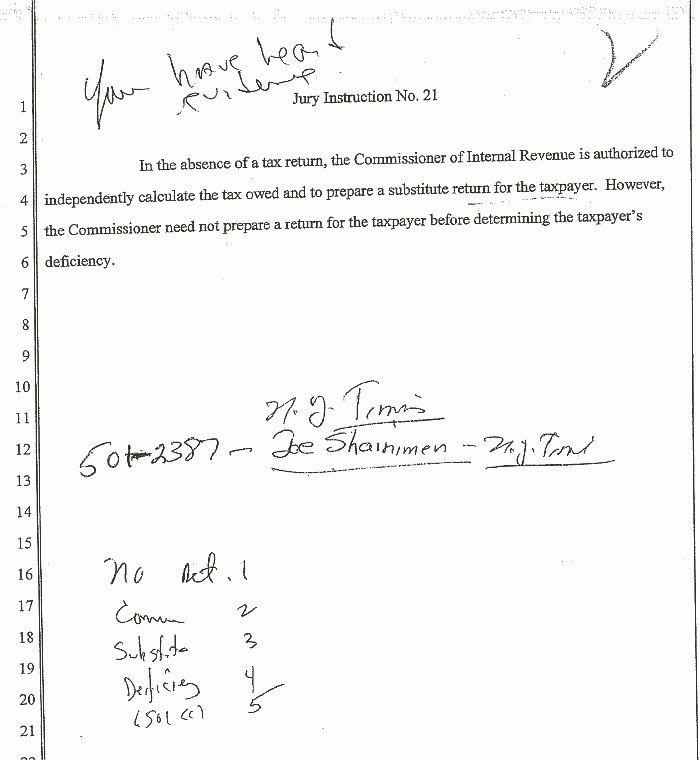 You have heard
evidence
Jury Instruction No. 21
1
2
3 In the absence of a tax return, the Commissioner of Internal Revenue is authorized to
4 independently calculate the tax owed and to prepare a substitute return for the taxpayer. However,
5 the Commissioner need not prepare a return for the taxpayer before determining the taxpayer's
6 deficiency.
7
8
9
10
11 N.Y. Times
12 501-2387 - Joe
13
14
15
16 No 1
17 Comm 2
18 Substitu 3
19 Deficiency 4
20 (501 (c) 5
21